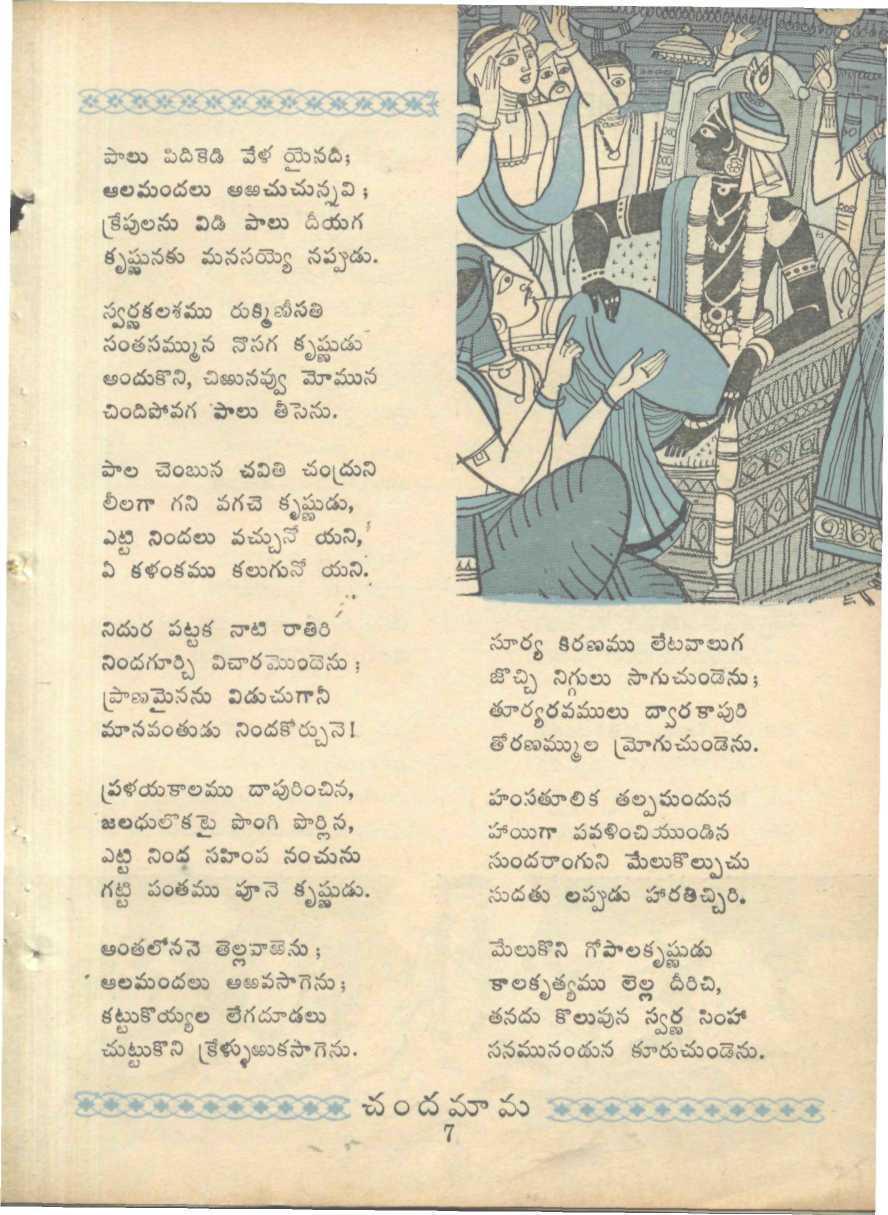 పాలు పిదికెడి వేళ యైనది;
ఆలమందలు అఱచుచున్నవి;
క్రేపులను విడి పాలు దీయగ
కృష్ణునకు మనసయ్యె నప్పడు.
స్వర్ణకలశము రుక్మిణీసతి
సంతసమ్మున నొసగ కృష్ణుడు
అందుకొని, చిఱునవ్వు మోమున
చిందిపోవగ పాలు తీసెను.
పాల చెంబున చవితి చంద్రుని
లీలగా గని వగచె కృష్ణుడు,
ఎట్టి నిందలు వచ్చునో యని,
ఏ కళంకము కలుగునో యని.
నిదుర పట్టక నాటి రాతిరి
నిందగూర్చి విచారమొందెను;
ప్రాణమైనను విడుచుగానీ
మానవంతుడు నిందకోర్చునె!
ప్రళయకాలము దాపురించిన,
జలధులొకటై పొంగి పొర్లిన,
ఎట్టి నింద సహింప నంచును
గట్టి పంతము పూనె కృష్ణుడు.
అంతలోననె తెల్లవాఱెను;
ఆలమందలు అఱవసాగెను;
కట్టుకొయ్యల లేగదూడలు
చుట్టుకొని క్రేళ్ళుఱుకసాగెను.
సూర్య కిరణము లేటవాలుగ
జొచ్చి నిగ్గులు సాగుచుండెను;
తూర్యరవములు ద్వారకాపురి
తోరణమ్ముల మ్రోగుచుండెను.
హంసతూలిక తల్పమందున
హాయిగా పవళించియుండిన
సుందరాంగుని మేలుకొల్పుచు
సుదతు లప్పడు హారతిచ్చిరి.
మేలుకొని గోపాలకృష్ణుడు
కాలకృత్యము లెల్ల దీరిచి,
తనదు కొలువున స్వర్ణ సింహా
సనమునందున కూరుచుండెను.
చందమామ
7